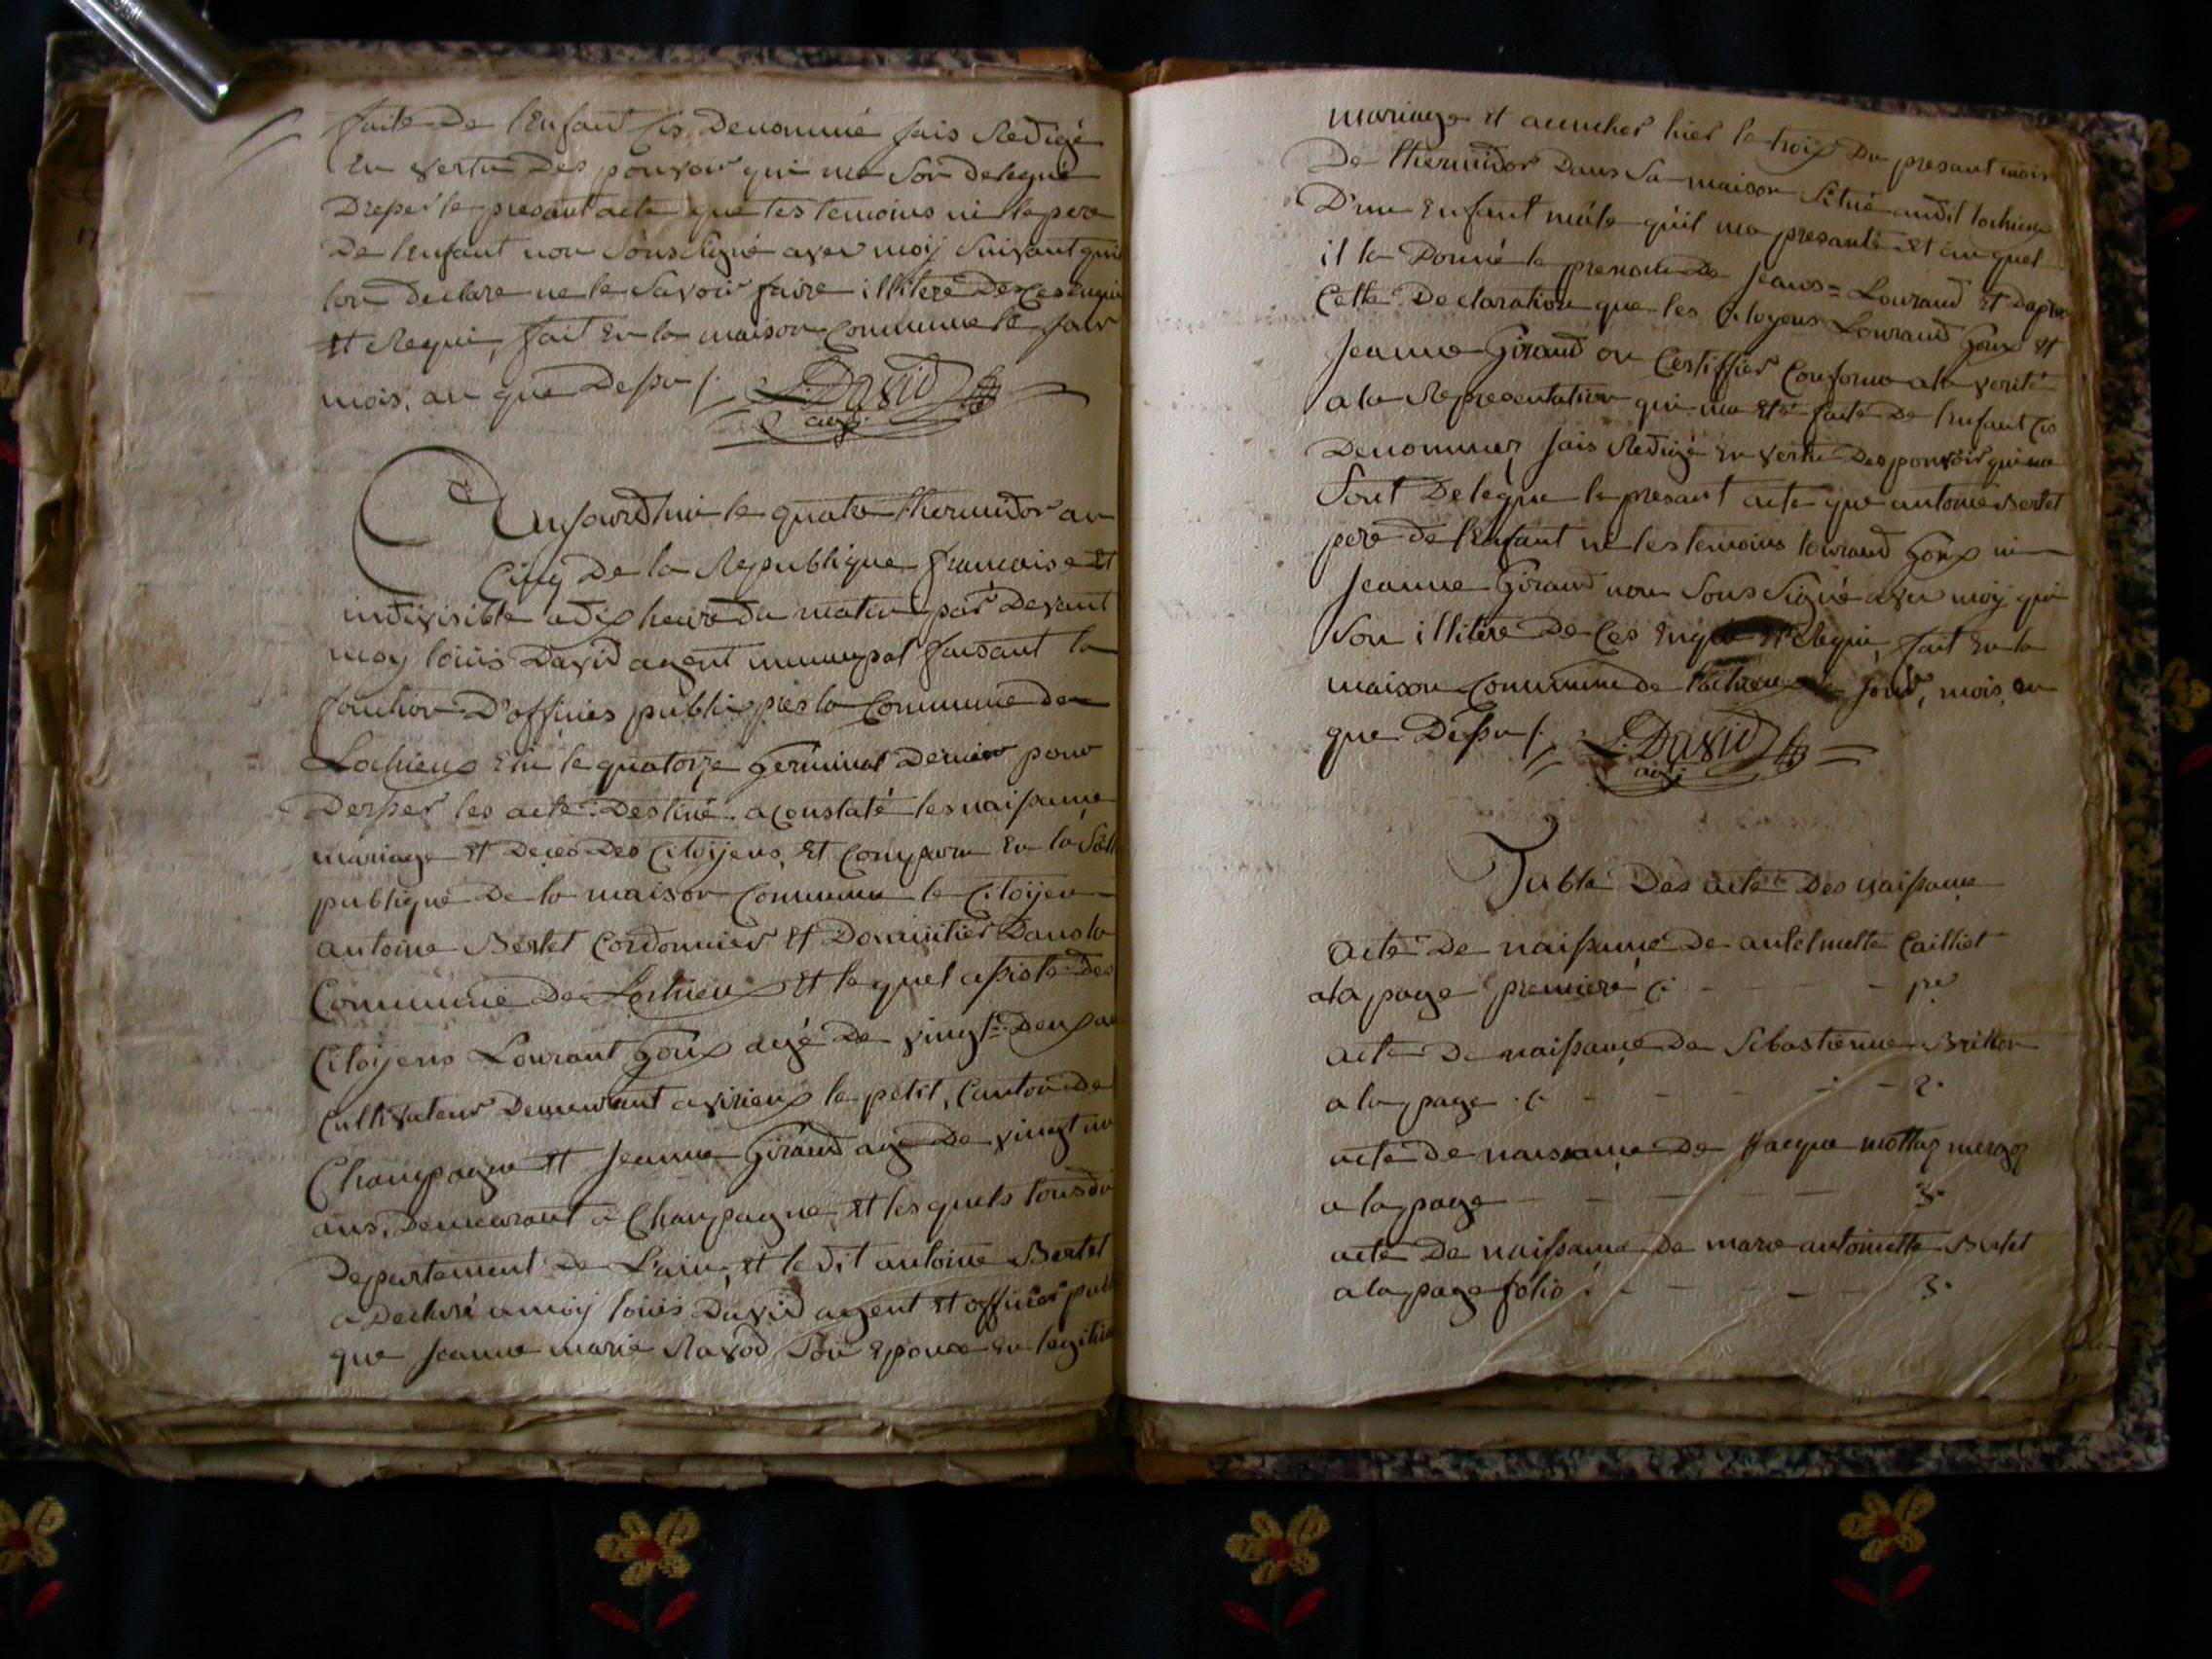 faite De l'Enfant Cis Denommé jais Redigé
En vertu Des pouvoir qui me Son delegué
Dreper le presant acte que les temoins ni le pere
De l'enfant non Sousigné avec moij Suivant quil
lon declare ne le Savoir faire illiteré De Ces Enquis
et Requi, fait En la maison Commune le jour
mois, an que Dessu /. L. David
agt.
Aujourdhui le quatre thermidor an
Cinq De la Republique francaise et
indivisible a dix heure du matin par Devant
moy loüis David agent municipal faisant la
fonction D'officies public pres la Commune de
Lochieux Elu le quatorze Germinal Dernier pour
Derser les acte Destiné a Constaté les naissance
mariage et Deces Des Citoijens, et Comparu En la Sall
publique De la maison Commune le Citoijen
antoine Bertet Cordonnier et Domicitier Dans la
Commune de Lochieux et le quel assisté Des
Citoijens Lourant Goux agé De vingt-Deux an
Cultivateur Demeurant a virieux le petit, Canton De
Champagne et Jeanne Giraud agé De vingt un
ans, Demeurant à Champagne, et les quels tous du
Departement De L'ain, et le dit antoine Bertet
a Declaré a moij loüis David agent et officier publ
que Jeanne marie Ravod Son Epouse En legitim
mariage et acoucher hier le trois Du presant mois
De thermidor Dans Sa maison Situé audit lochieux
D'un Enfant mâle qu'il ma presanté et au quel
il la Donné le prenom de Jeans= Lourand et Dapres
Cette Declaration que les Citoyens Lourand Goux et
Jeanne Giraud on Certiffier Conforme a la verité
a la Representation qui ma eté faite De l'enfant Cis
Denommez jais Redigé En vertu Des pouvoir qui me
Sont Delegue le presant acte que antoine Bertet
pere de l'Enfant ni les temoins lourand Goux ni
Jeanne Giraud non Sous Signé avec moij qui
Son illitere De Ces Enquis et Requi, fait En la
maison Commune de lochieux jour, mois, an
que Dessu /. L. David
agt.
Table Des acte Des naissance
acte De naissance De antelmette Cailliet
a la page premiere C. - - - pre
acte De naissance De Sebastienne Britton
a la page . C. - - - 2.
acte de naissance De Jacque mottaz meraoz
a la page - - - 3.
acte De naissance De marie antoinette Bertet
a la page folio . - - - 3.